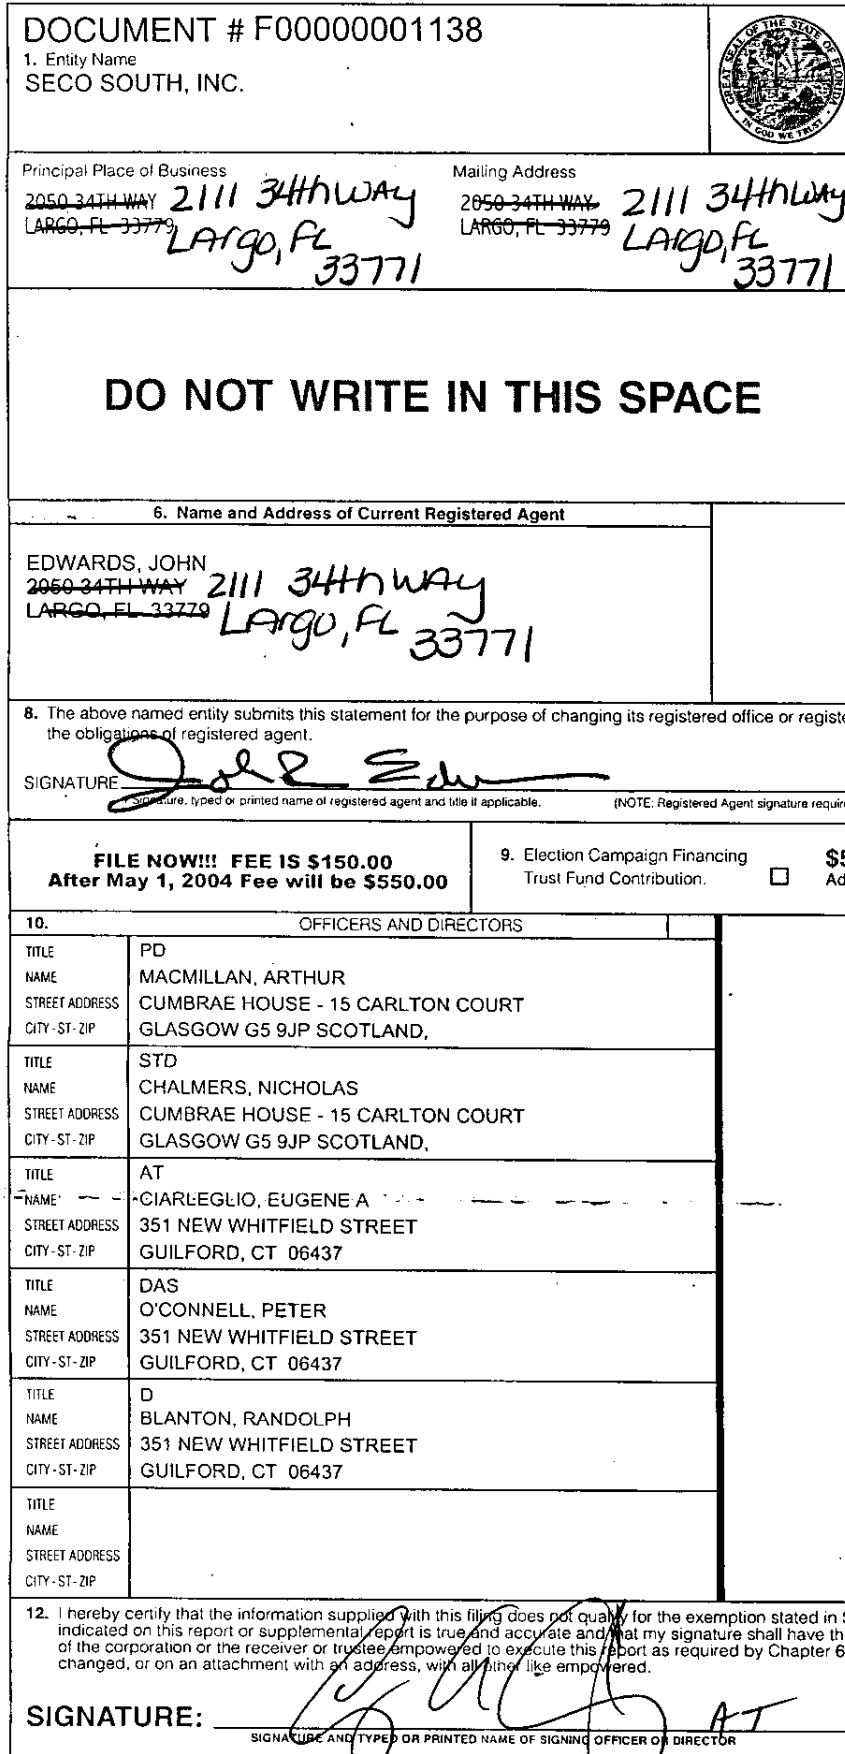 DOCUMENT # F00000001138
1. Entity Name
SECO SOUTH, INC.
GREAT SEAL OF THE STATE OF FLORIDA
IN GOD WE TRUST
Principal Place of Business
2050 34TH WAY 2111 34th WAY
LARGO, FL 33779 LArgo, FL
33771
Mailing Address
2050 34TH WAY 2111 34th WAY
LARGO, FL 33779 LArgo, FL
33771
DO NOT WRITE IN THIS SPACE
6. Name and Address of Current Registered Agent
EDWARDS, JOHN
2050 34TH WAY 2111 34th WAy
LARGO, FL 33779 LArgo, FL
33771
8. The above named entity submits this statement for the purpose of changing its registered office or registe
the obligations of registered agent.
SIGNATURE John R Edw
Signature, typed or printed name of registered agent and title if applicable. (NOTE: Registered Agent signature requir
FILE NOW!!! FEE IS $150.00
After May 1, 2004 Fee will be $550.00
9. Election Campaign Financing
Trust Fund Contribution.
$5
Ad
10. OFFICERS AND DIRECTORS
TITLE PD
NAME MACMILLAN, ARTHUR
STREET ADDRESS CUMBRAE HOUSE - 15 CARLTON COURT
CITY-ST-ZIP GLASGOW G5 9JP SCOTLAND,
TITLE STD
NAME CHALMERS, NICHOLAS
STREET ADDRESS CUMBRAE HOUSE - 15 CARLTON COURT
CITY-ST-ZIP GLASGOW G5 9JP SCOTLAND,
TITLE AT
NAME CIARLEGLIO, EUGENE A
STREET ADDRESS 351 NEW WHITFIELD STREET
CITY-ST-ZIP GUILFORD, CT 06437
TITLE DAS
NAME O'CONNELL, PETER
STREET ADDRESS 351 NEW WHITFIELD STREET
CITY-ST-ZIP GUILFORD, CT 06437
TITLE D
NAME BLANTON, RANDOLPH
STREET ADDRESS 351 NEW WHITFIELD STREET
CITY-ST-ZIP GUILFORD, CT 06437
TITLE
NAME
STREET ADDRESS
CITY-ST-ZIP
12. I hereby certify that the information supplied with this filing does not qualify for the exemption stated in S
indicated on this report or supplemental report is true and accurate and that my signature shall have th
of the corporation or the receiver or trustee empowered to execute this report as required by Chapter 6
changed, or on an attachment with an address, with all other like empowered.
SIGNATURE: AT
SIGNATURE AND TYPED OR PRINTED NAME OF SIGNING OFFICER OR DIRECTOR